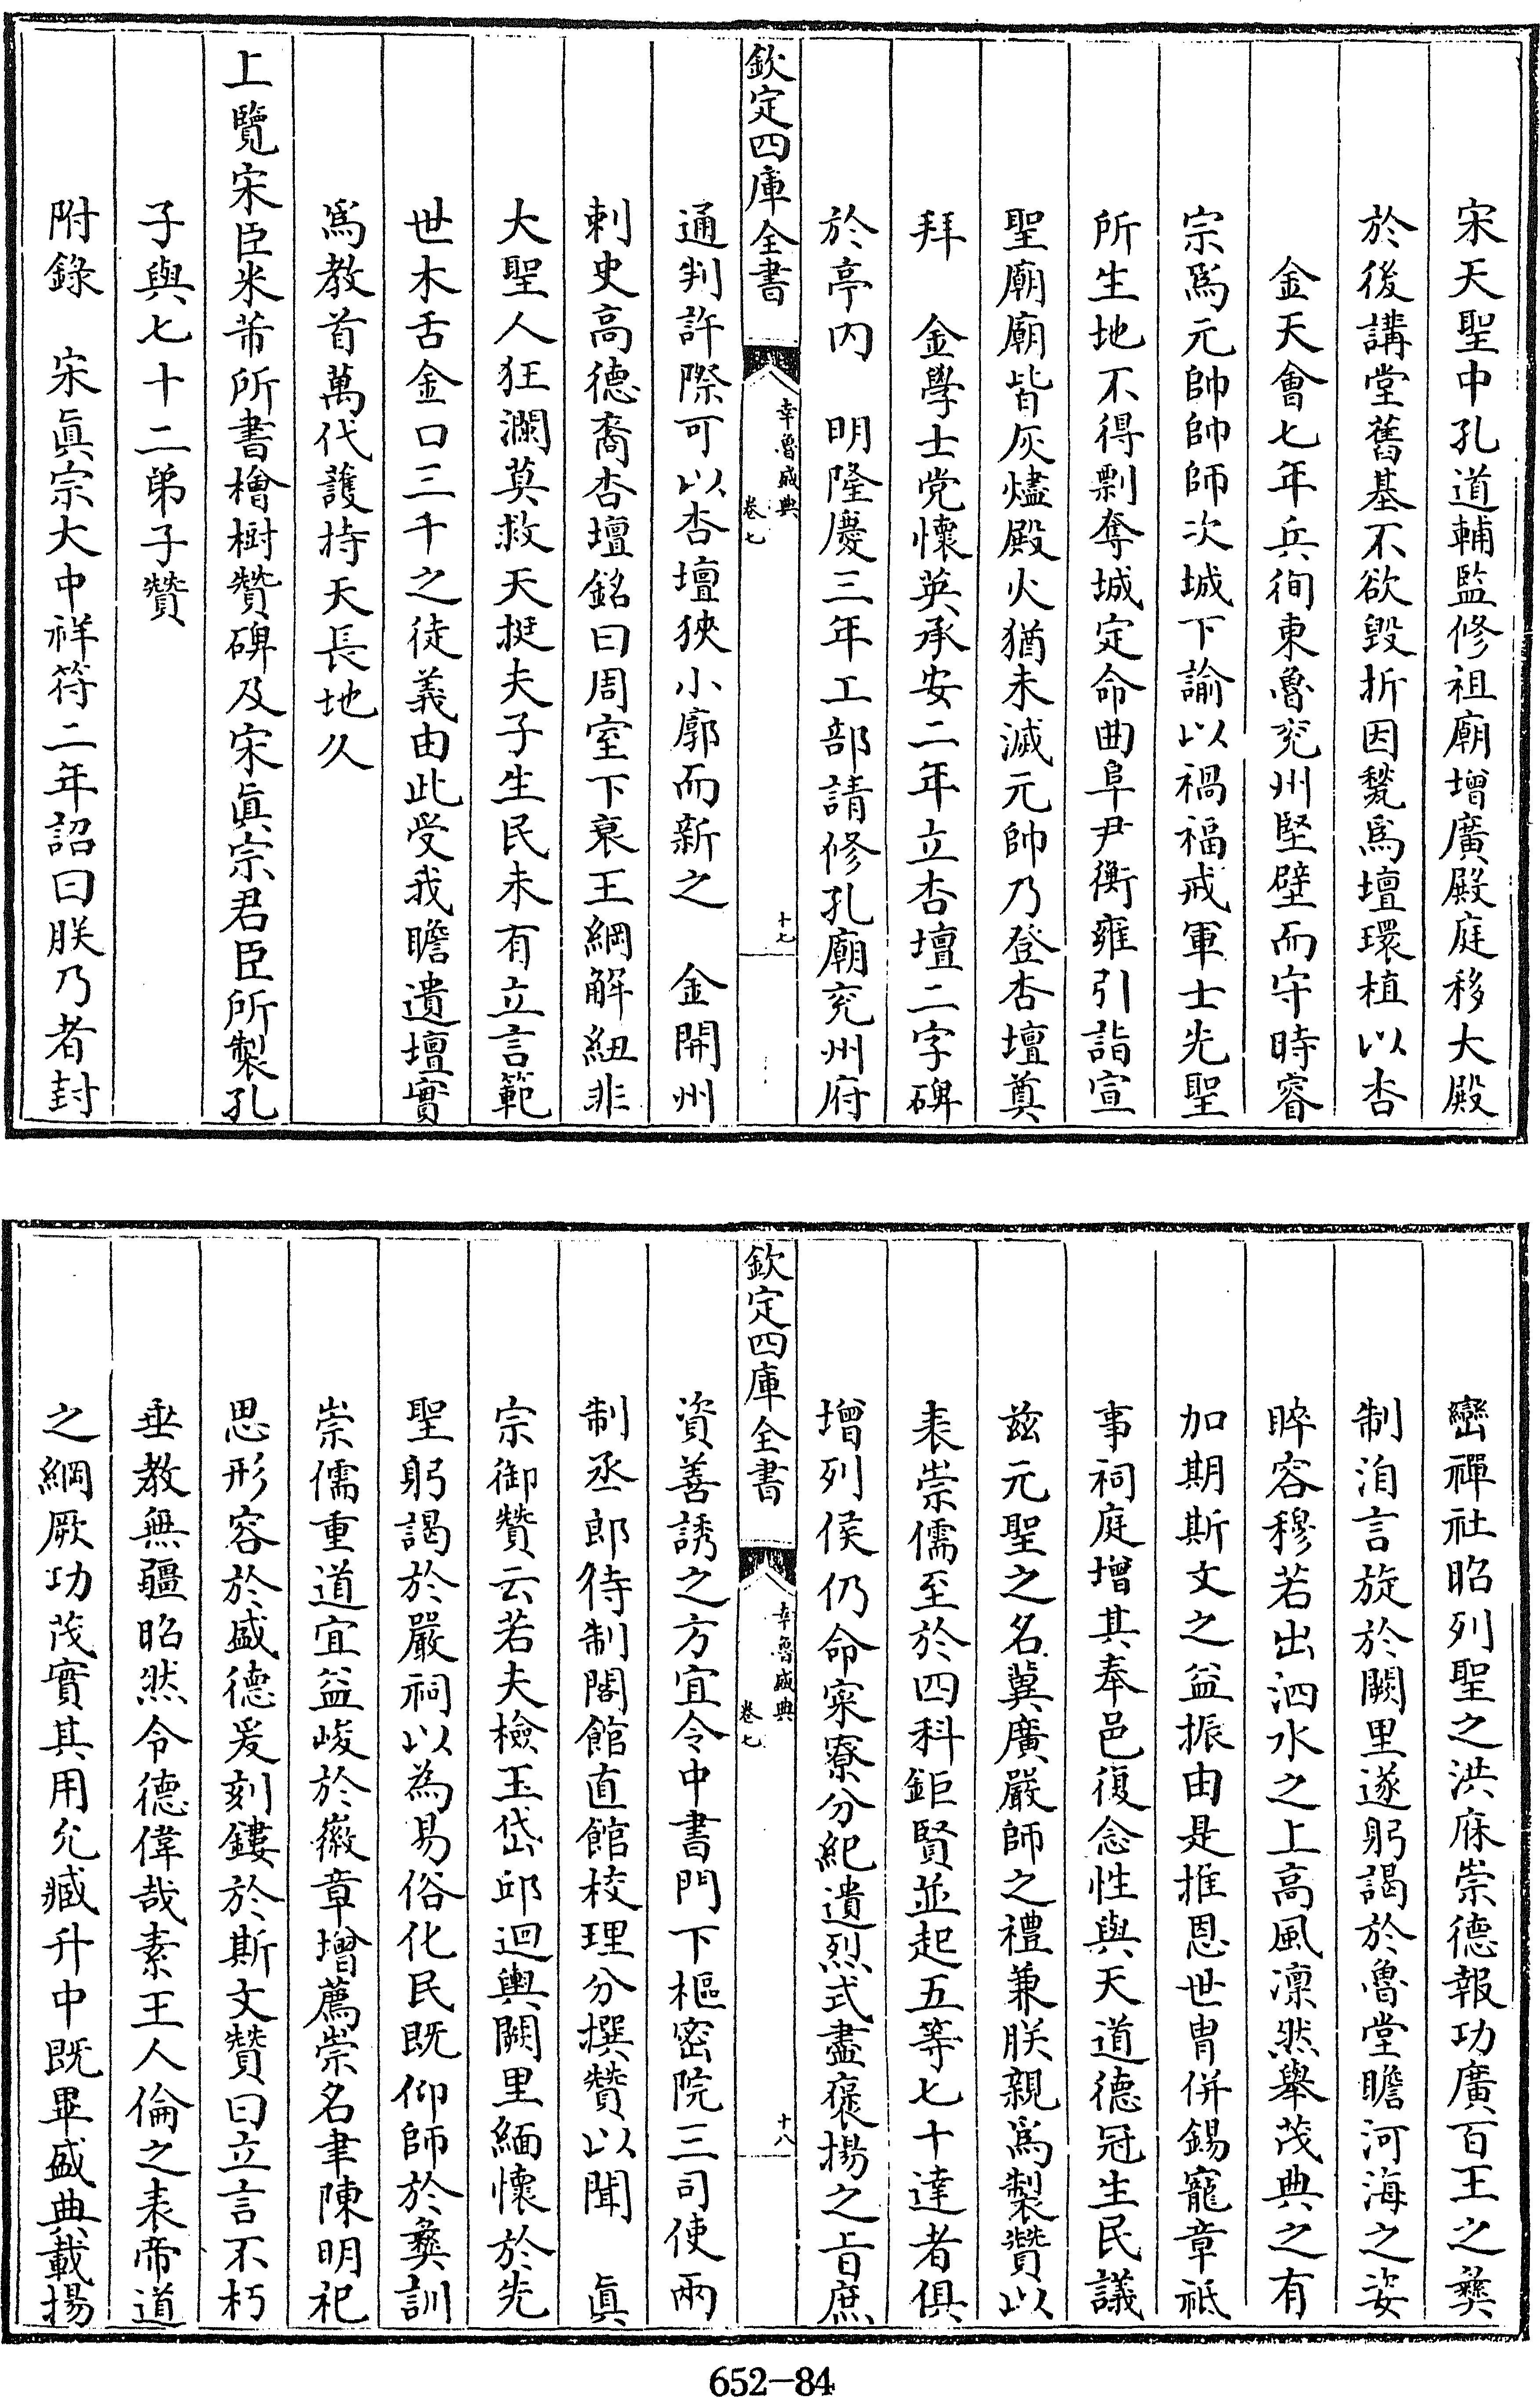 宋天聖中孔道輔監修祖廟增廣殿庭移大殿
於後講堂舊基不欲毀折因甃爲壇環植以杏
金天會七年兵徇東魯兖州堅壁而守時睿
宗爲元帥帥師次城下諭以禍福戒軍士先聖
所生地不得剽奪城定命曲阜尹衡雍引詣宣
聖廟廟皆灰燼殿火猶未滅元帥乃登杏壇奠
拜　金學士党懷英承安二年立杏壇二字碑
於亭内　明隆慶三年工部請修孔廟兖州府
欽定四庫全書
幸魯盛典
卷七
十七
通判許際可以杏壇狹小廓而新之　金開州
刺史高德裔杏壇銘曰周室下衰王綱解紐非
大聖人狂瀾莫救天挺夫子生民未有立言範
世木舌金口三千之徒義由此受我瞻遺壇實
爲教首萬代護持天長地久
上覽宋臣米芾所書檜樹贊碑及宋眞宗君臣所製孔
子與七十二弟子贊
附錄　宋眞宗大中祥符二年詔曰朕乃者封
巒禪社昭列聖之洪庥崇德報功廣百王之彝
制洎言旋於闕里遂躬謁於魯堂瞻河海之姿
睟容穆若出泗水之上高風凛然舉茂典之有
加期斯文之益振由是推恩世胄併錫寵章祗
事祠庭增其奉邑復念性與天道德冠生民議
兹元聖之名冀廣嚴師之禮兼朕親爲製贊以
表崇儒至於四科鉅賢並起五等七十達者俱
增列侯仍命寀寮分紀遺烈式盡褒揚之㫖庶
欽定四庫全書
幸魯盛典
卷七
十八
資善誘之方宜令中書門下樞密院三司使兩
制丞郎待制閣館直館校理分撰贊以聞　眞
宗御贊云若夫檢玉岱邱迴輿闕里緬懷於先
聖躬謁於嚴祠以為易俗化民既仰師於彝訓
崇儒重道宜益峻於徽章增薦崇名聿陳明祀
思形容於盛德爰刻鏤於斯文贊曰立言不朽
垂教無疆昭然令德偉哉素王人倫之表帝道
之綱厥功茂實其用允臧升中既畢盛典載揚
652-84